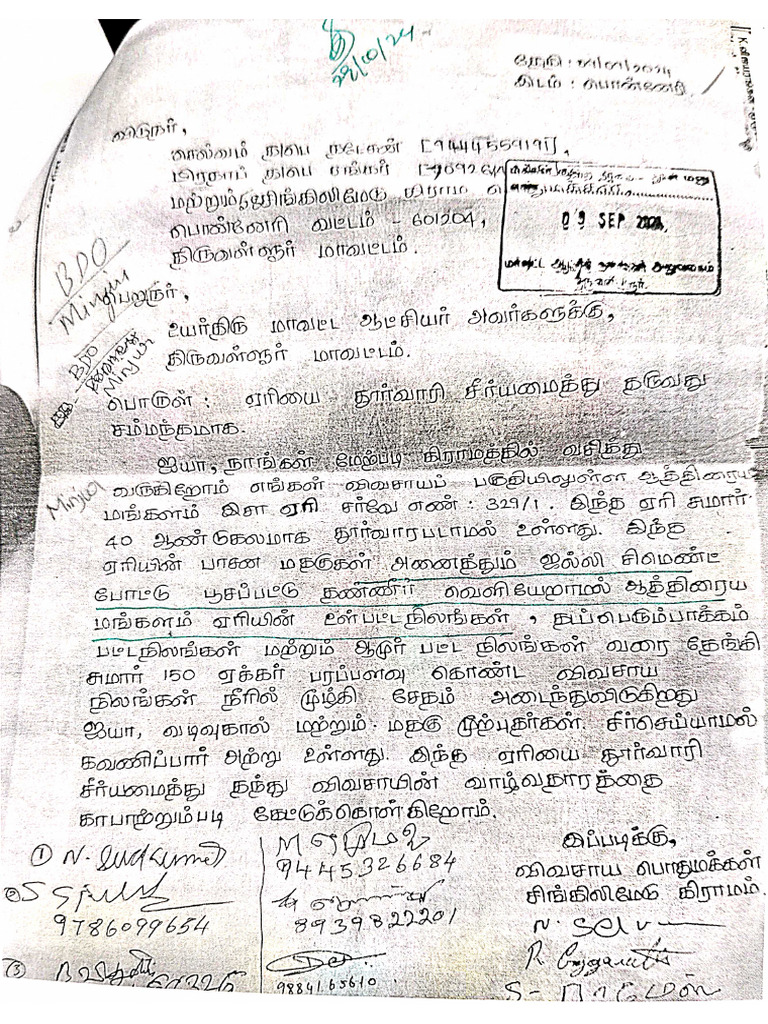 இடம் : பொன்னேரி
விடுநர்,
செல்வம் த/பெ நடேசன் [9444559191],
பிரதாப் த/பெ சங்கர்
மற்றும் சிங்கிலிமேடு கிராம
பொன்னேரி வட்டம் - 601204,
திருவள்ளூர் மாவட்டம்.
09 SEP 2024
BDO
Minjur
பெறுநர்,
உயர்திரு மாவட்ட ஆட்சியர் அவர்களுக்கு,
திருவள்ளூர் மாவட்டம்.
BDO
Minjur
பொருள் : ஏரியை தூர்வாரி சீர்யமைத்து தருவது
சம்மந்தமாக.
ஐயா, நாங்கள் மேற்படி கிராமத்தில் வசித்து
Minjur
வருகிறோம் எங்கள் விவசாயப் பகுதியிலுள்ள ஆத்திரைய
மங்கலம் ஏரி சர்வே எண் : 329/1. இந்த ஏரி சுமார்
40 ஆண்டுகலமாக தூர்வாரபடாமல் உள்ளது. இந்த
ஏரியின் பாசன மதகுகள் அனைத்தும் ஜல்லி சிமெண்ட்
போட்டு பூசப்பட்டு தண்ணீர் வெளியேறாமல் ஆத்திரைய
மங்களும் ஏரியின் உள்பட்டநிலங்கள்,
பட்டநிலங்கள் மற்றும் ஆமுர் பட்ட நிலங்கள் வரை தேங்கி
சுமார் 150 ஏக்கர் பரப்பளவு கொண்ட விவசாய
நிலங்கள் நீரில் மூழ்கி சேதம் அடைந்துவிடுகிறது
ஐயா, வடிவுகால் மற்றும் மதகு முற்புதர்கள். சீர்செய்யாமல்
கவணிப்பார் அற்று உள்ளது. இந்த ஏரியை தூர்வாரி
சீர்யமைத்து தந்து விவசாயின் வாழ்வதாரத்தை
காபாற்றும்படி கேட்டுக்கொள்கிறோம்.
இப்படிக்கு,
விவசாய பொதுமக்கள்
சிங்கிலிமேடு கிராமம்.
①
9445326684
②
9786099654
8939822201
③
9884165610